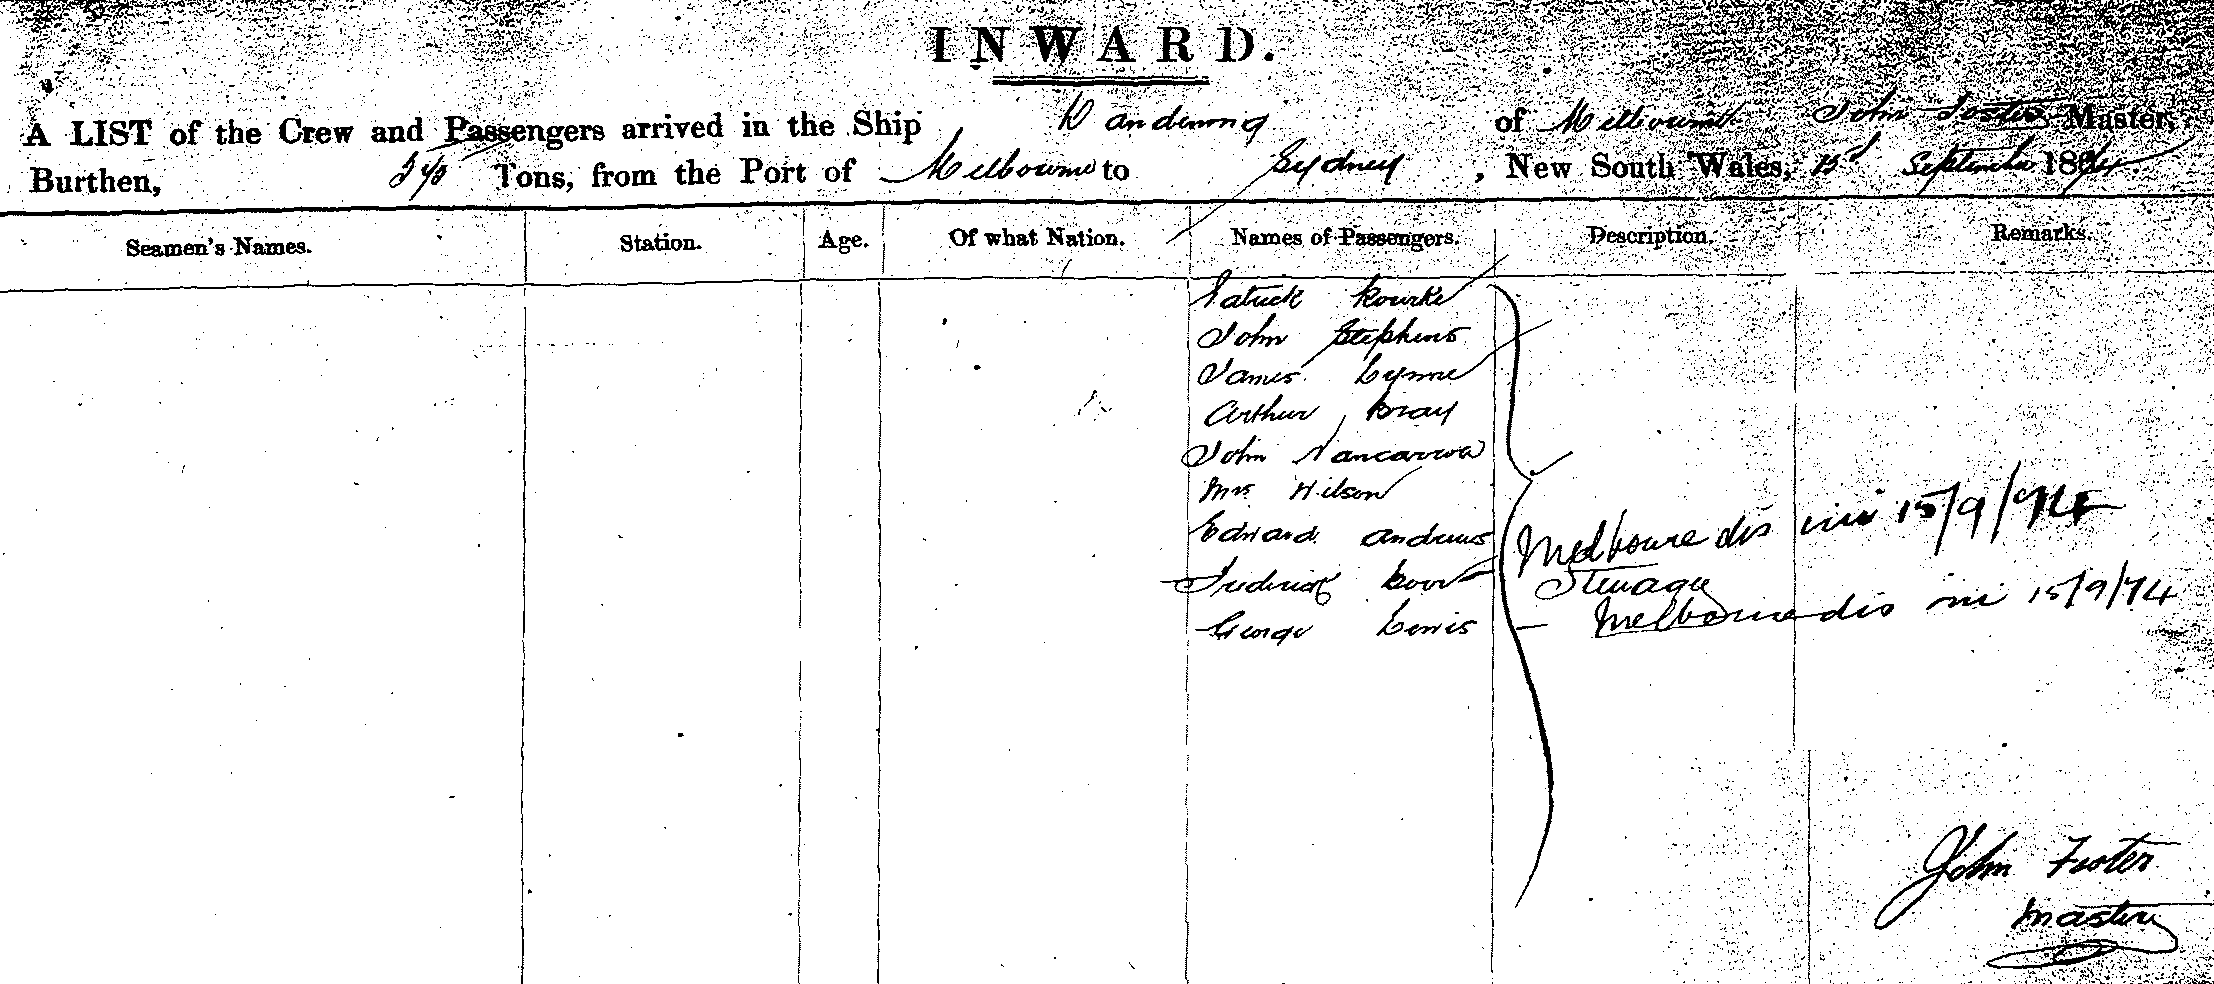 INWARD.
A LIST of the Crew and Passengers arrived in the Ship Dandenong of Melbourne John Foster Master,
Burthen, Tons, from the Port of Melbourne to Sydney, New South Wales, 15 September 1874.
Seamen's Names. Station. Age. Of what Nation. Names of Passengers. Description. Remarks.
Patrick Rourke
John Stephens
James Lynne
Arthur Bray
John Nancarrow
Mrs Wilson
Edward Andrews
Melbourne dis 15/9/74
Frederick
Steerage
George Lewis — Melbourne dis 15/9/74
John Foster
Master